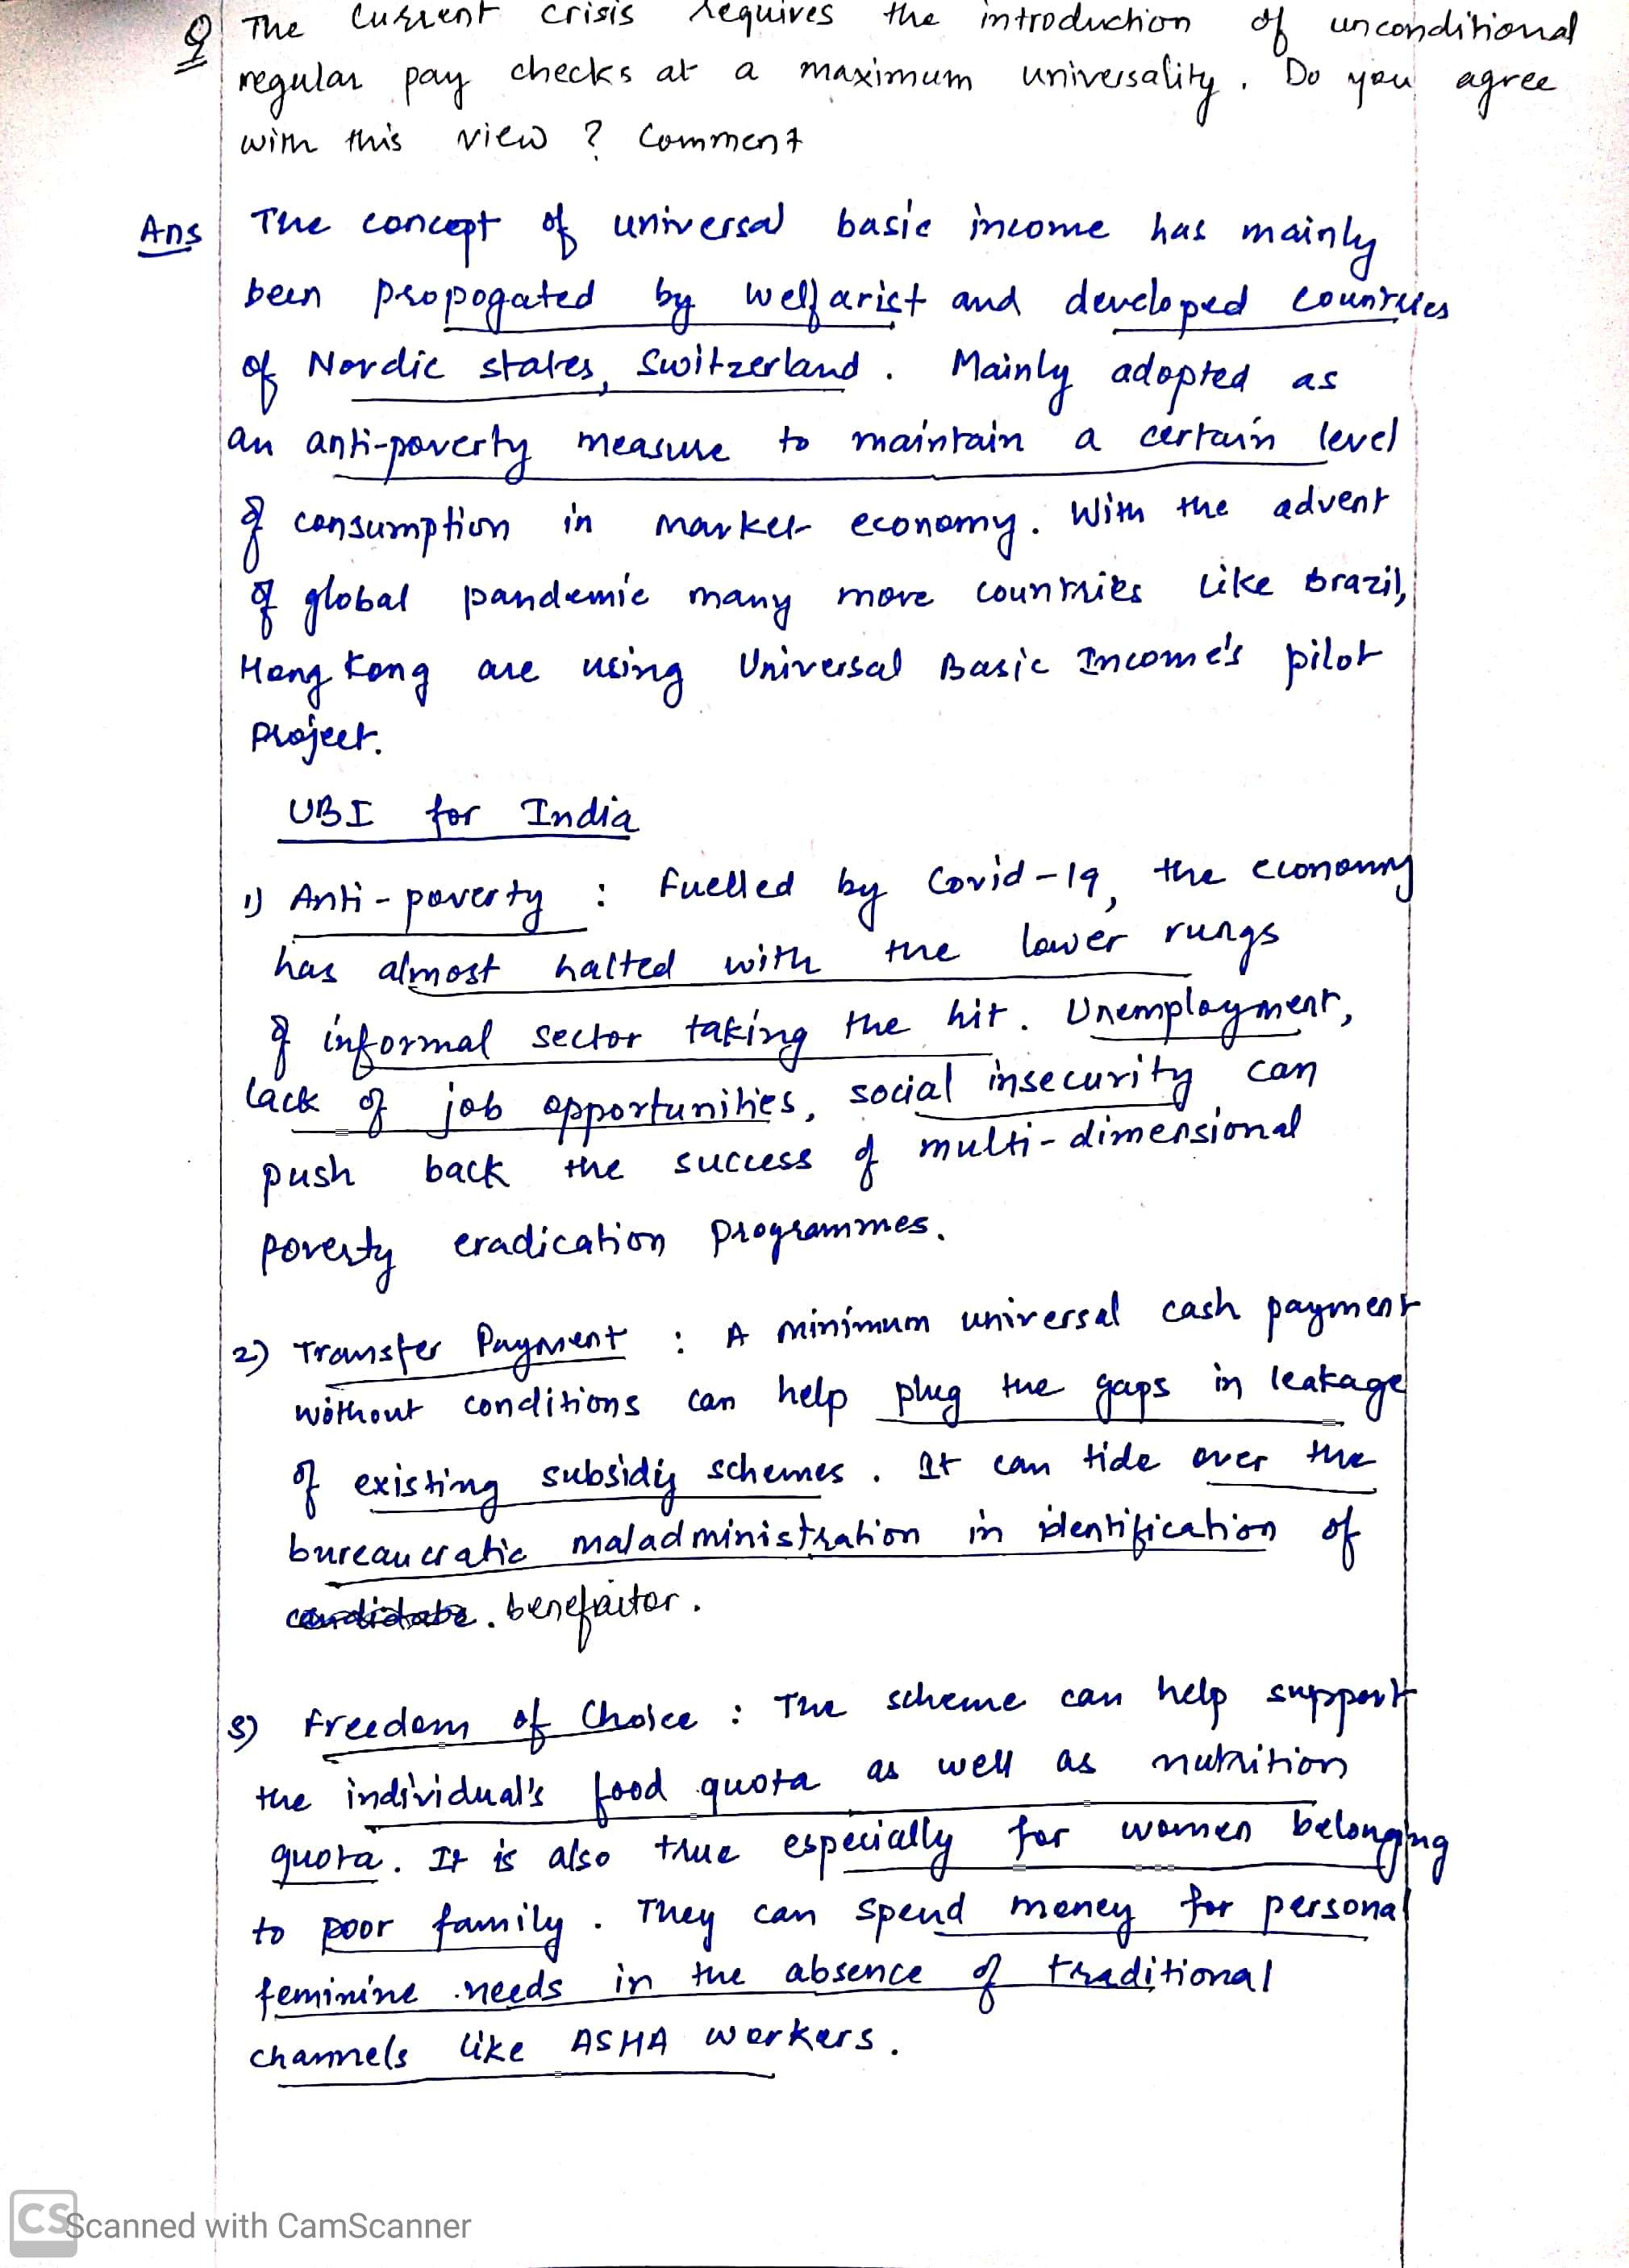 Q The current crisis requires the introduction of unconditional
regular pay checks at a maximum universality. Do you agree
with this view? Comment
Ans The concept of universal basic income has mainly
been propogated by welfarist and developed countries
of Nordic states, Switzerland. Mainly adopted as
an anti-poverty measure to maintain a certain level
of consumption in market economy. With the advent
of global pandemic many more countries like Brazil,
Hong Kong are using Universal Basic Income's pilot
project.
UBI for India
1) Anti-poverty : Fuelled by Covid-19, the economy
has almost halted with the lower rungs
of informal sector taking the hit. Unemployment,
lack of job opportunities, social insecurity can
push back the success of multi-dimensional
poverty eradication programmes.
2) Transfer Payment : A minimum universal cash payment
without conditions can help plug the gaps in leakage
of existing subsidy schemes. It can tide over the
bureaucratic maladministration in identification of
candidate. benefactor.
3) Freedom of Choice : The scheme can help support
the individual's food quota as well as nutrition
quota. It is also true especially for women belonging
to poor family. They can spend money for personal
feminine needs in the absence of traditional
channels like ASHA workers.
CS Scanned with CamScanner